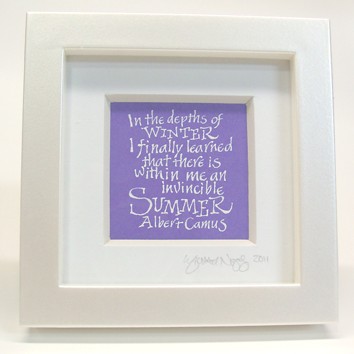 In the depths of
WINTER
I finally learned
that there is
within me an
invincible
SUMMER
Albert Camus